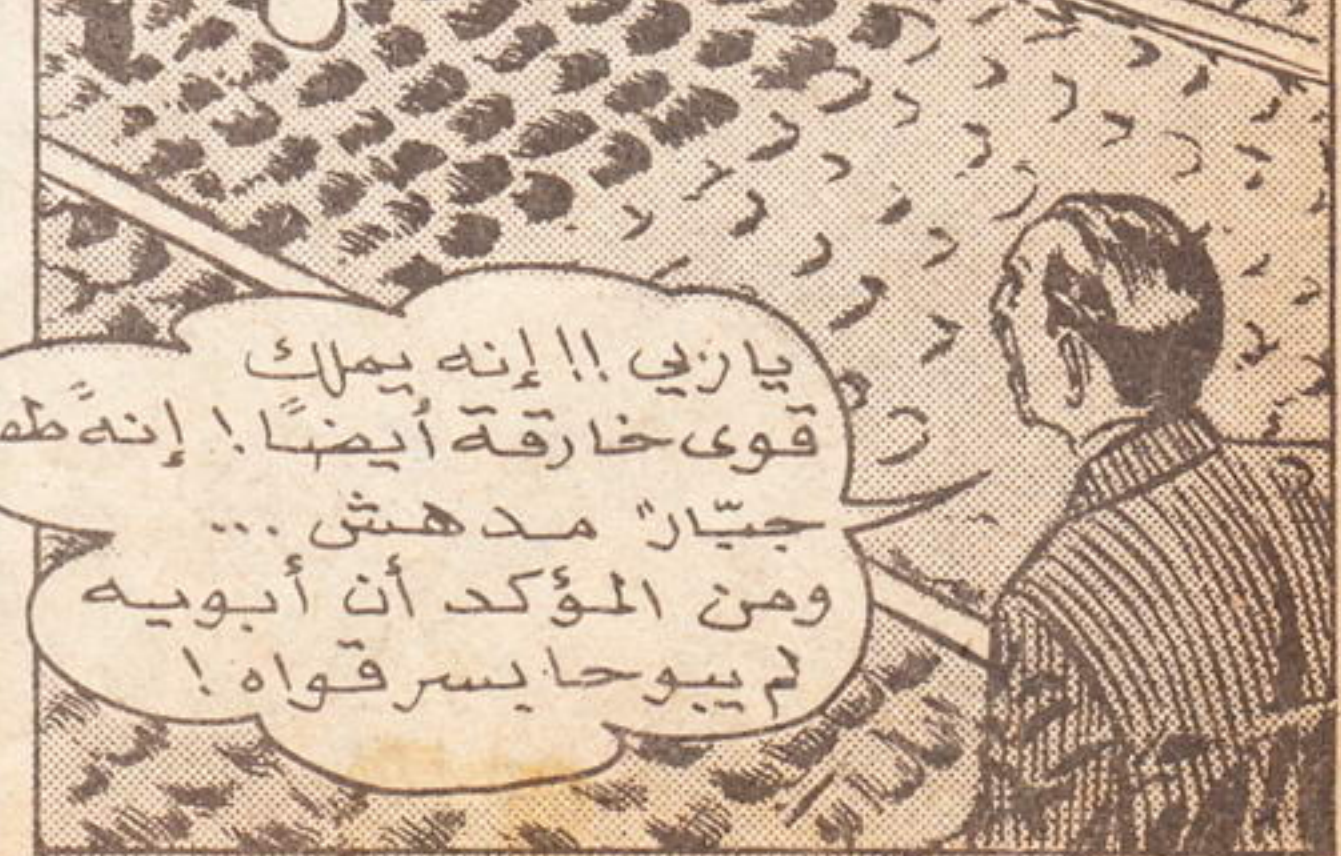 يا ربي !! إنه يملك
قوى خارقة أيضًا! إنه
جبّار مدهش ...
ومن المؤكد أن أبويه
لم يبوحا بسر قواه !